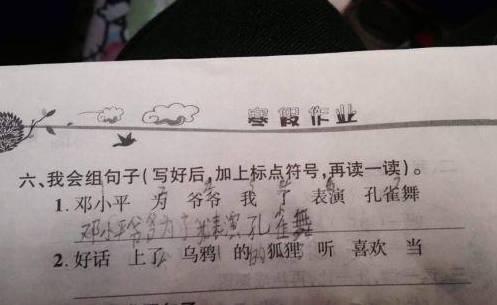 寒假作业
六、我会组句子(写好后,加上标点符号,再读一读)。
1.邓小平 为 爷爷 我 了 表演 孔雀舞
邓小平爷爷为了我表演孔雀舞
2.好话 上了 乌鸦 的 狐狸 听 喜欢 当